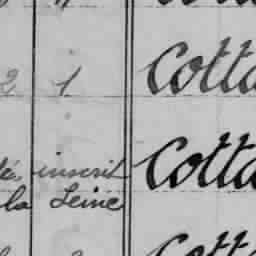 2 1 Cotta
inscrit Cotta
la Seine
Cotta